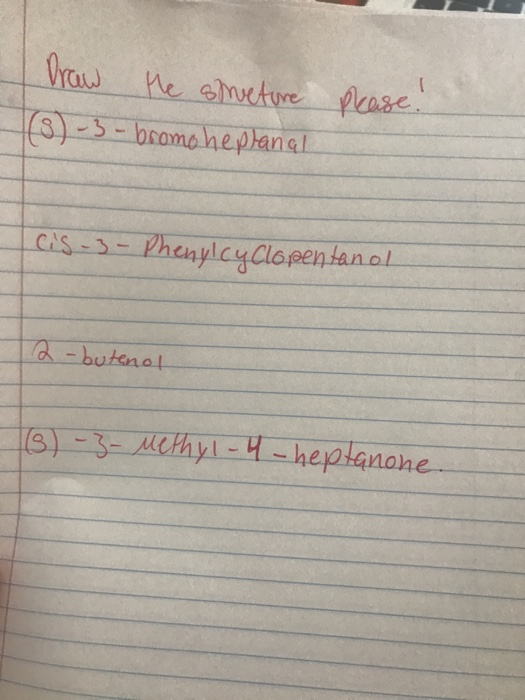 Draw the structure please!
(S)-3-bromoheptanal
cis-3-Phenylcyclopentanol
2-butenol
(S)-3-Methyl-4-heptanone.